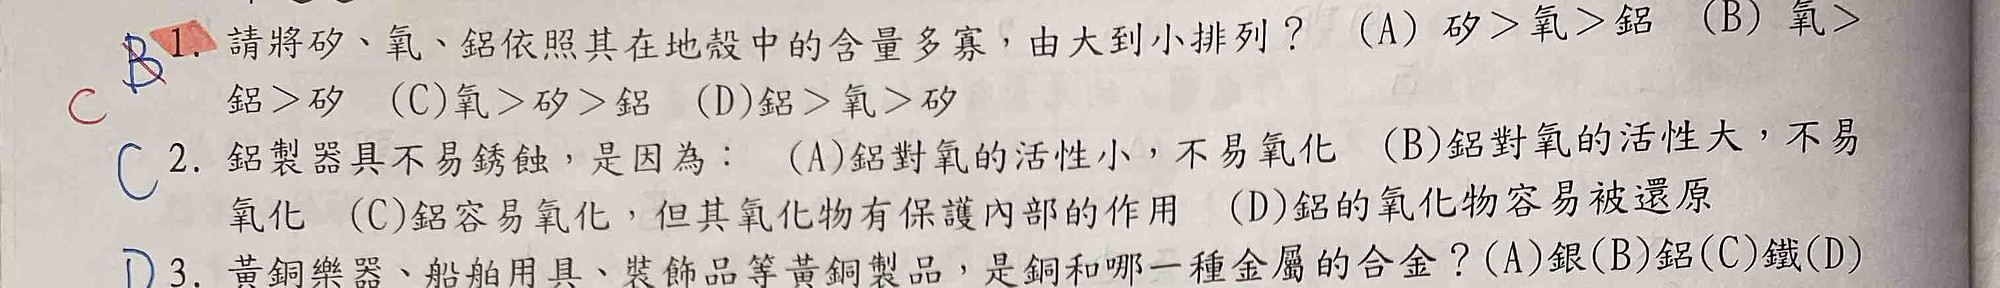 B 1. 請將矽、氧、鋁依照其在地殼中的含量多寡，由大到小排列？ (A) 矽＞氧＞鋁 (B) 氧＞
C 鋁＞矽 (C)氧＞矽＞鋁 (D)鋁＞氧＞矽
C 2. 鋁製器具不易銹蝕，是因為： (A)鋁對氧的活性小，不易氧化 (B)鋁對氧的活性大，不易
氧化 (C)鋁容易氧化，但其氧化物有保護內部的作用 (D)鋁的氧化物容易被還原
D 3. 黃銅樂器、船舶用具、裝飾品等黃銅製品，是銅和哪一種金屬的合金？(A)銀(B)鋁(C)鐵(D)